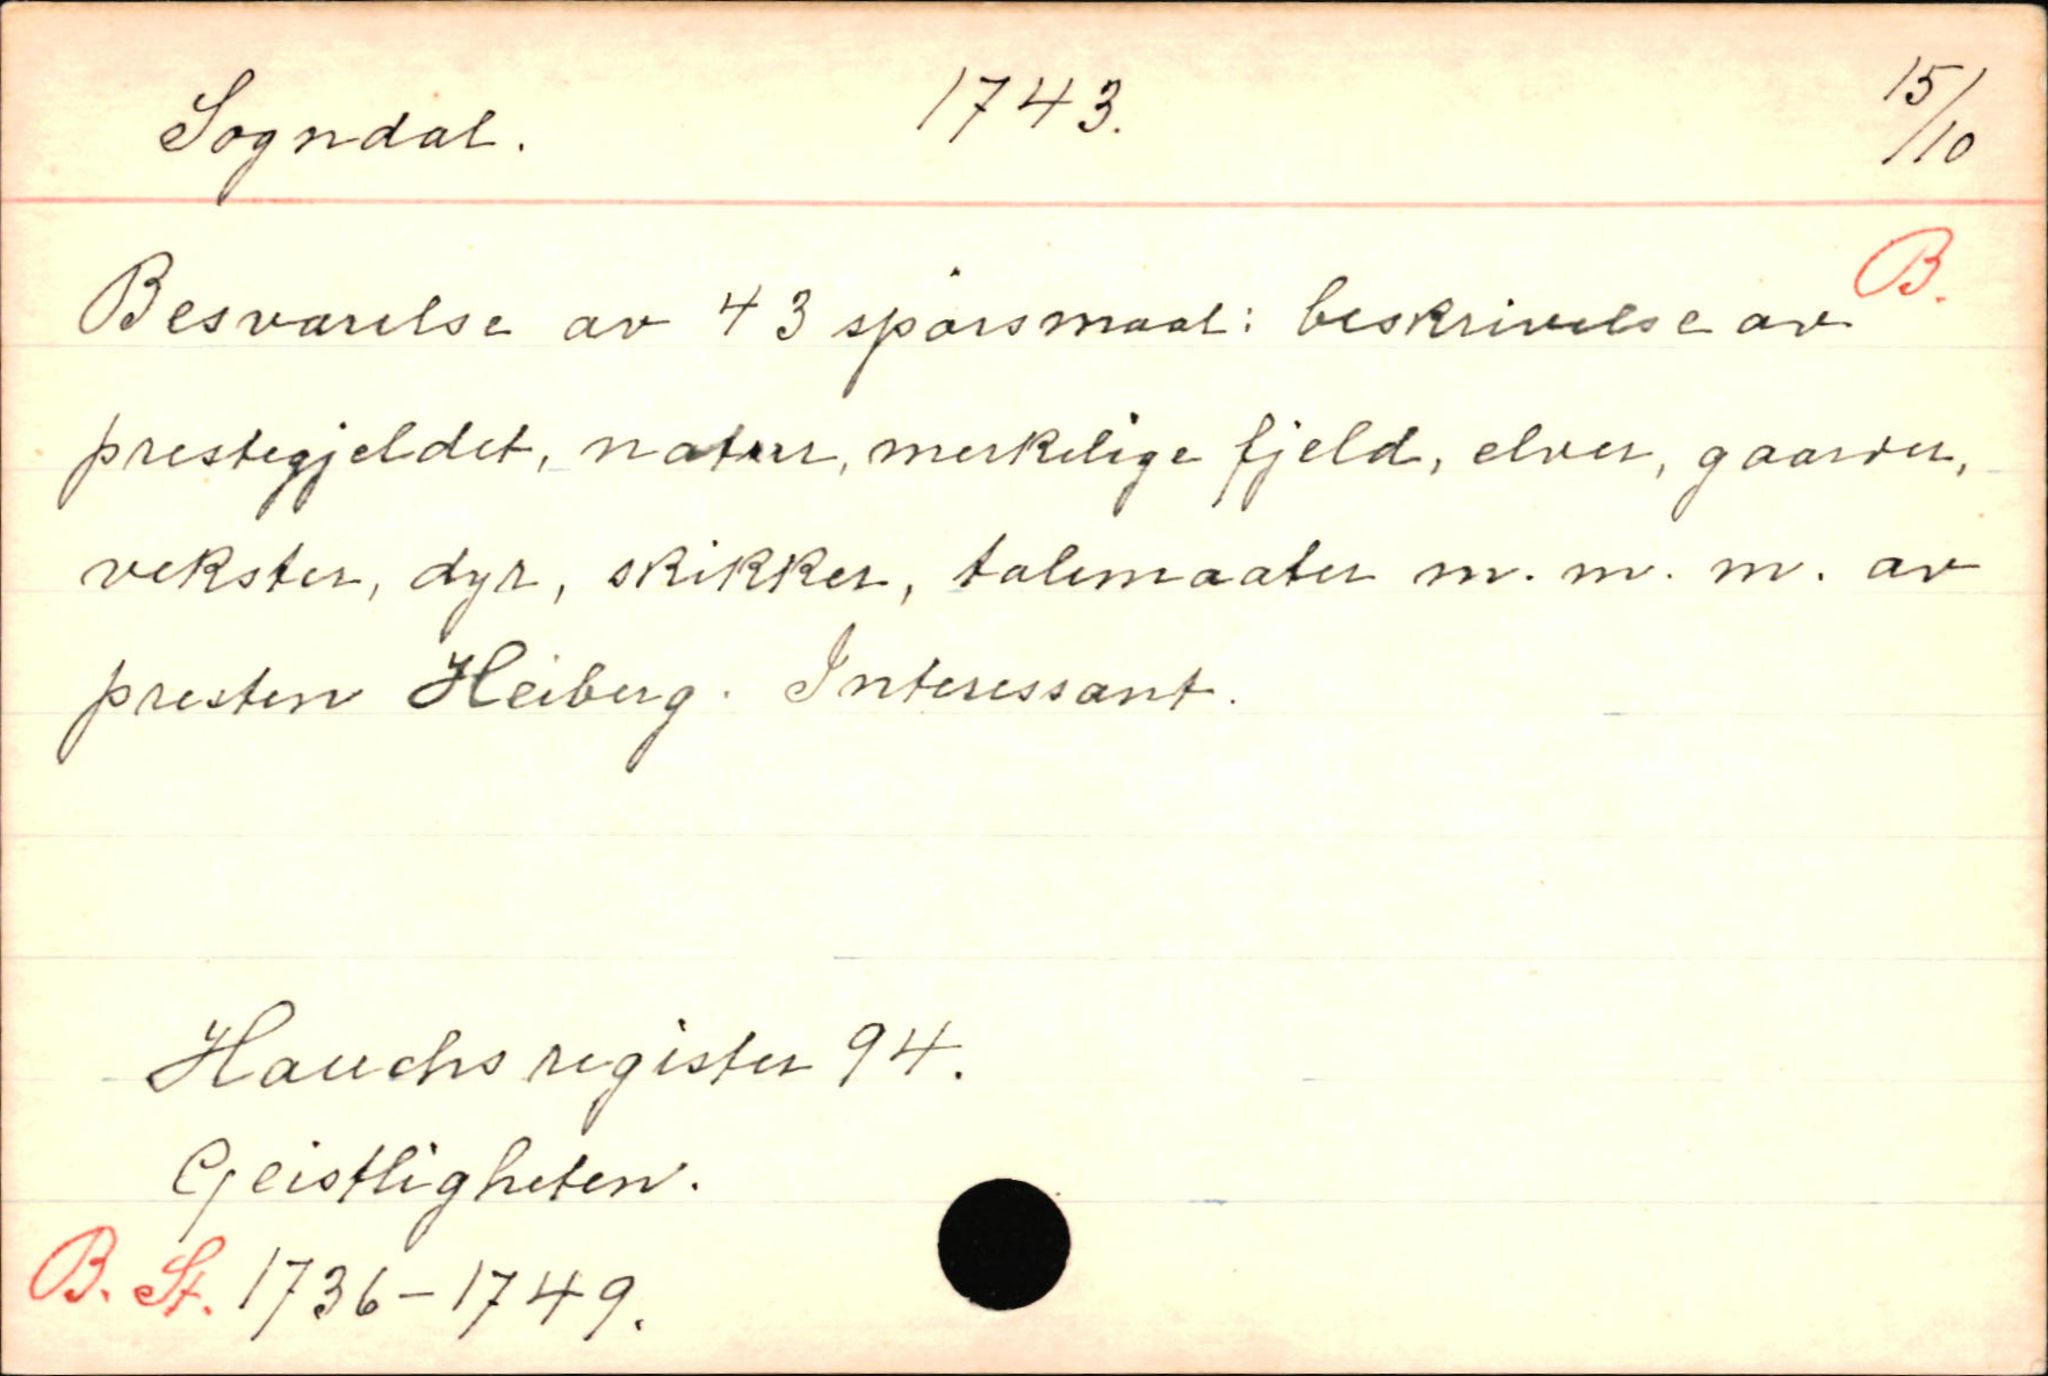 Sogndal. 1743. 15/10
B.
Besvarelse av 43 spørsmaal: beskrivelse av
prestegjeldet, natur, merkelige fjeld, elver, gaarder,
vekster, dyr, skikker, talemaater m. m. m. av
presten Heiberg. Interessant.
Hauchs register 94.
Geistligheten.
B. St. 1736-1749.